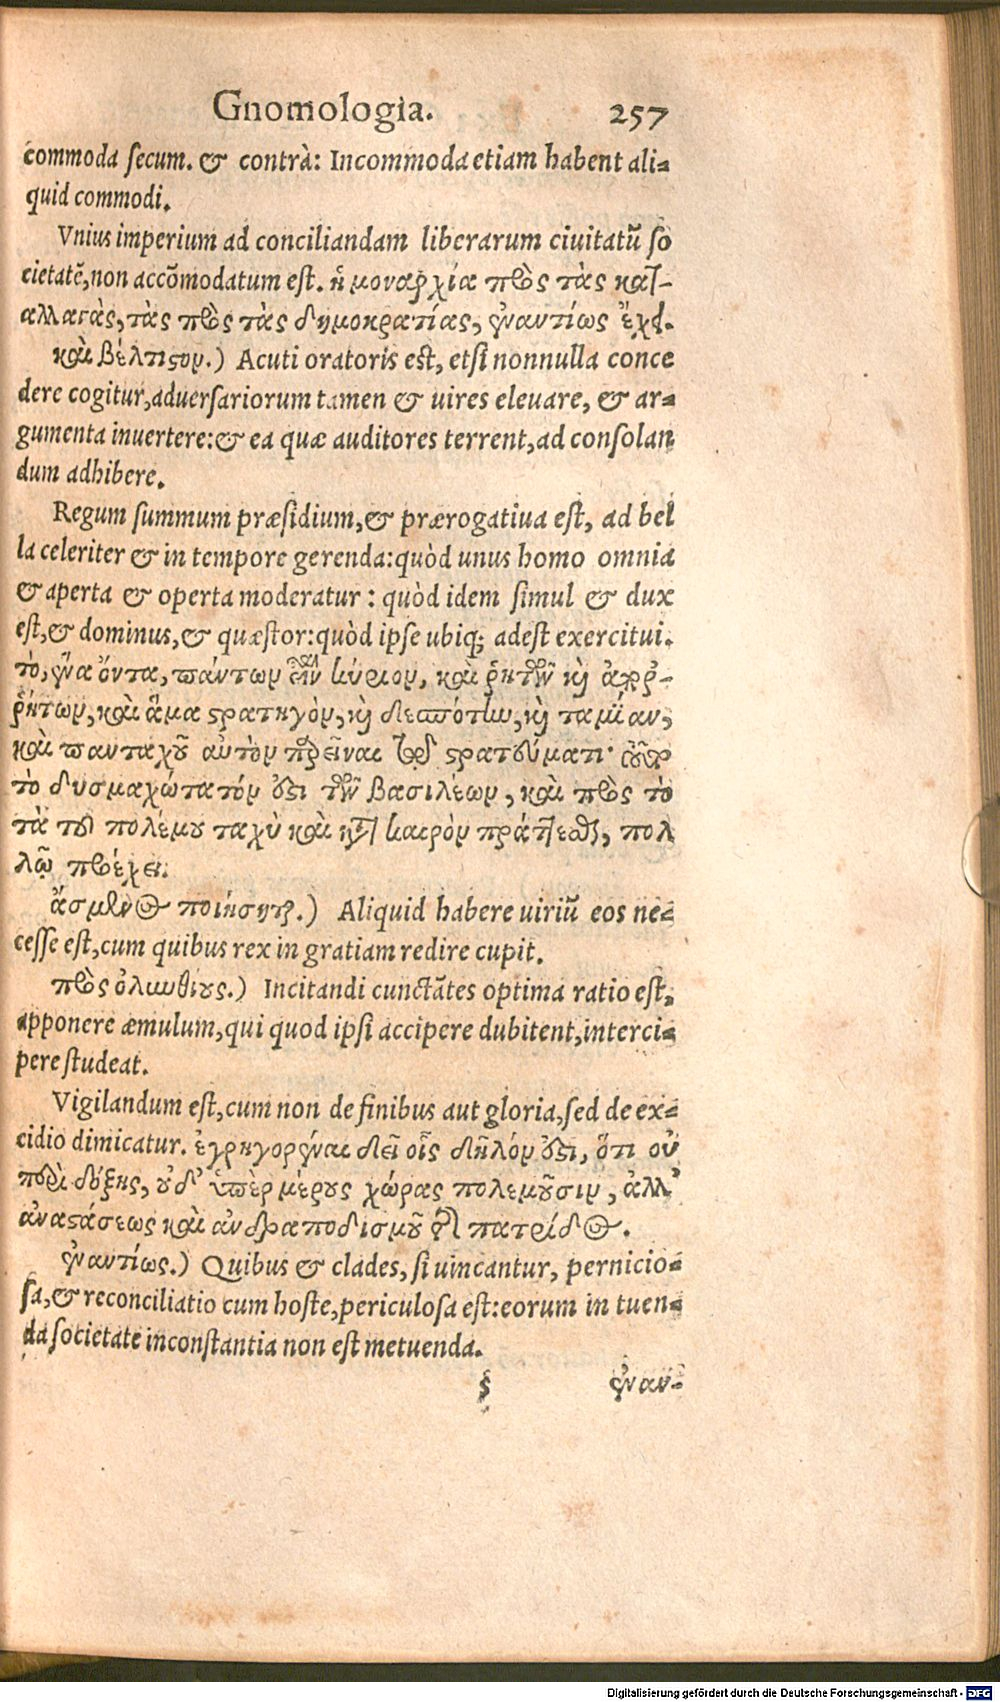 Gnomologia. 257
commoda secum. & contrà: Incommoda etiam habent ali-
quid commodi.
Vnius imperium ad conciliandam liberarum ciuitatũ so
cietatẽ, non accõmodatum est. ἡ μοναρχία πρὸς τὰς κατ-
αλλαγὰς, τὰς πρὸς τὰς δημοκρατίας, ἐναντίως ἔχει.
καὶ βέλτιστον.) Acuti oratoris est, etsi nonnulla conce
dere cogitur, aduersariorum tamen & uires eleuare, & ar-
gumenta inuertere: & ea quæ auditores terrent, ad consolan
dum adhibere.
Regum summum præsidium, & prærogatiua est, ad bel
la celeriter & in tempore gerenda: quòd unus homo omnia
& aperta & operta moderatur: quòd idem simul & dux
est, & dominus, & quæstor: quòd ipse ubiq; adest exercitui.
τὸ, ἕνα ὄντα, πάντων εἶναι κύριον, καὶ ῥητῶν καὶ ἀπορ-
ῥήτων, καὶ ἅμα στρατηγὸν, καὶ δεσπότην, καὶ ταμίαν,
καὶ πανταχοῦ αὐτὸν παρεῖναι τῷ στρατεύματι· ὅπερ
τὸ δυσμαχώτατόν ἐστι τῶν βασιλέων, καὶ πρὸς τὸ
τὰ τοῦ πολέμου ταχὺ καὶ κατὰ καιρὸν πράττεσθαι, πολ
λῷ προέχει.
ἄσμενος ποιήσηται.) Aliquid habere uiriũ eos ne-
cesse est, cum quibus rex in gratiam redire cupit.
πρὸς ὀλυνθίους.) Incitandi cunctãtes optima ratio est,
apponere æmulum, qui quod ipsi accipere dubitent, interci-
pere studeat.
Vigilandum est, cum non de finibus aut gloria, sed de ex-
cidio dimicatur. ἐγρηγορέναι δεῖ οἷς δῆλόν ἐστι, ὅτι οὐ
περὶ δόξης, οὐδ' ὑπὲρ μέρους χώρας πολεμοῦσιν, ἀλλ'
ἀναστάσεως καὶ ἀνδραποδισμοῦ τῆς πατρίδος.
ἐναντίως.) Quibus & clades, si uincantur, pernicio-
sa, & reconciliatio cum hoste, periculosa est: eorum in tuen-
da societate inconstantia non est metuenda.
§ ἐναν-
Digitalisierung gefördert durch die Deutsche Forschungsgemeinschaft - DFG